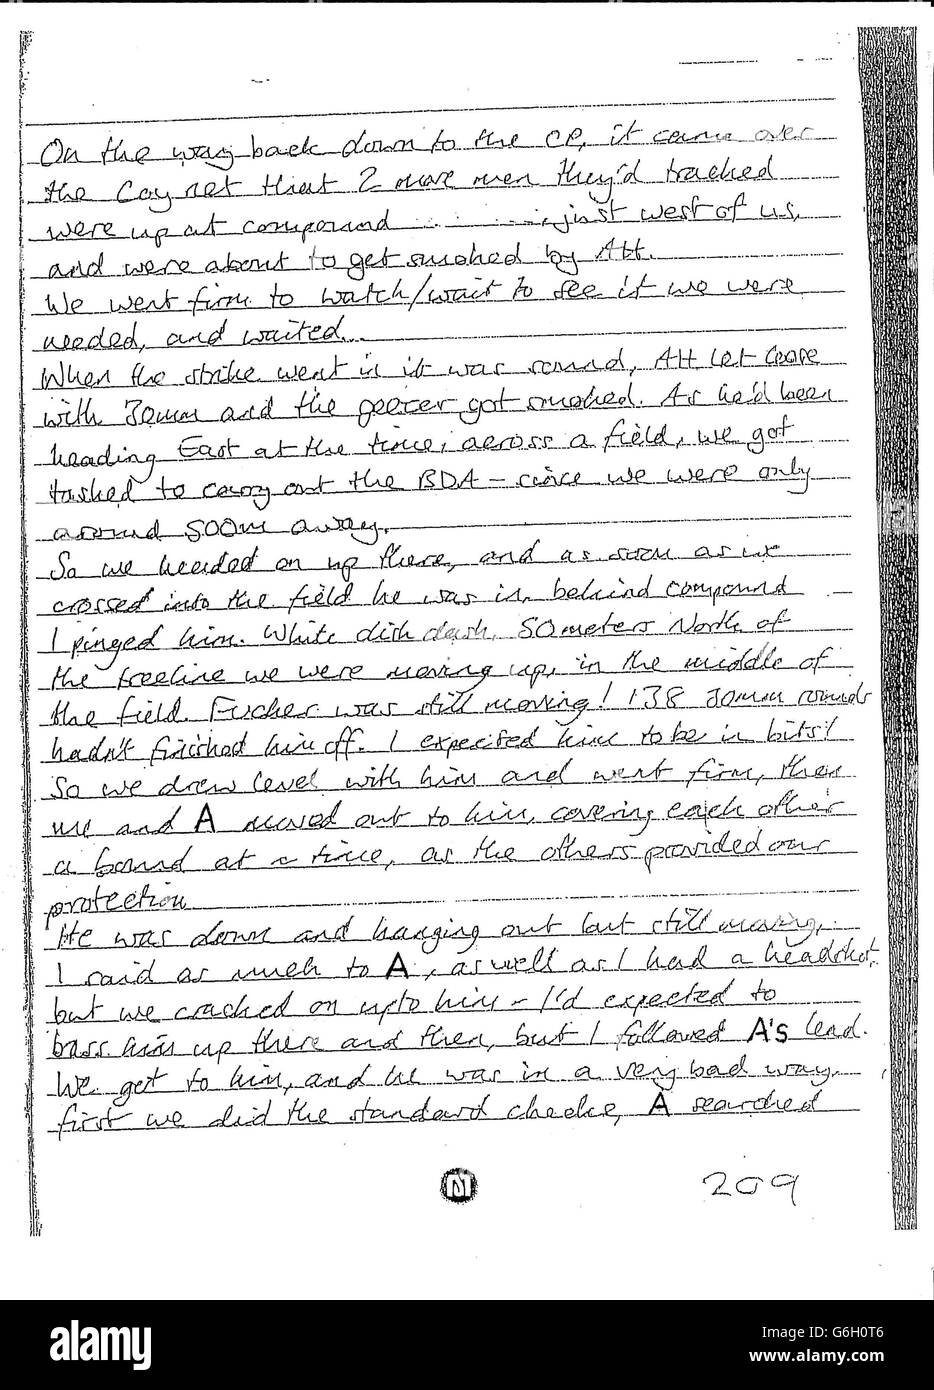 On the way back down to the CP, it came over
the Coy net that 2 more men they'd tracked
were up at compound ............ just west of us,
and were about to get smoked by AH.
We went firm to watch/wait to see if we were
needed, and waited...
When the strike went in it was sound, AH let loose
with 30mm and the geezer got smoked. As he'd been
heading East at the time, across a field, we got
tasked to carry out the BDA - since we were only
around 500m away.
So we headed on up there, and as soon as we
crossed into the field he was in, behind compound
I pinged him. White dish dash, 50 meters North of
the treeline we were moving up, in the middle of
the field. Fucker was still moving! 138 30mm rounds
hadn't finished him off. I expected him to be in bits!
So we drew level with him and went firm, then
me and A moved out to him, covering each other
a bound at a time, as the others provided our
protection
He was down and hanging out but still moving,
I said as much to A, as well as I had a headshot,
but we cracked on upto him - I'd expected to
bass him up there and then, but I followed A's lead.
We got to him, and he was in a very bad way.
first we did the standard checks, A searched
209
alamy
Image ID: G6H0T6
www.alamy.com